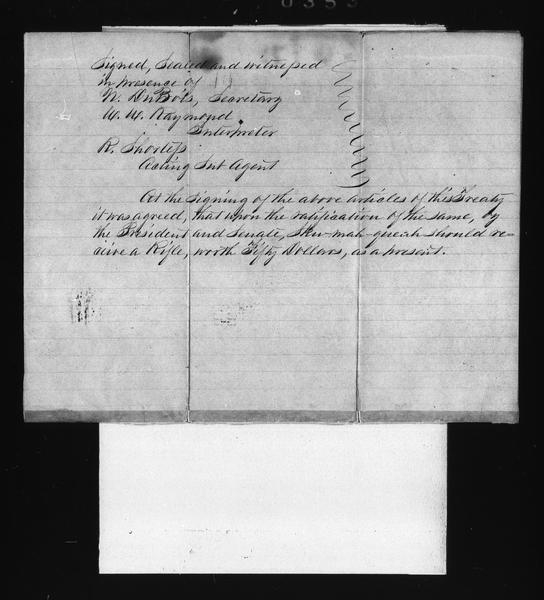 0353
Signed, Sealed and witnessed
in presence of
N. DuBois, Secretary
W. W. Raymond
Interpreter
R. Shortess
Acting Sub Agent
At the signing of the above articles of this Treaty
it was agreed, that upon the ratification of the same, by
the President and Senate, Skew-mah-queah should re-
ceive a Rifle, worth Fifty Dollars, as a present.